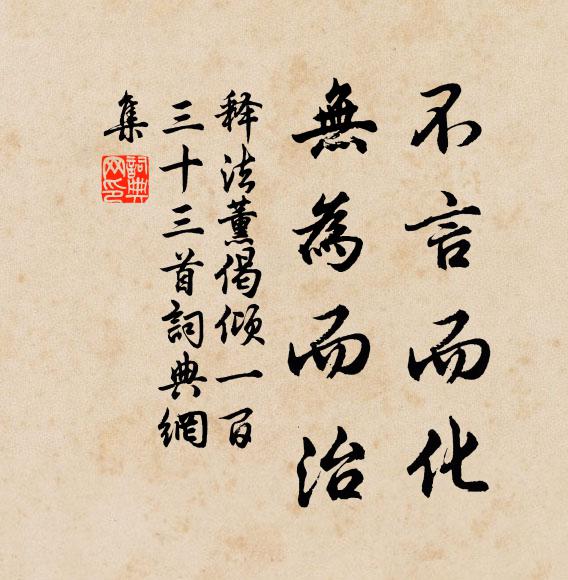 不言而化
無為而治
释法薰偈倾一百
三十三首詞典網
集
詞典
网印